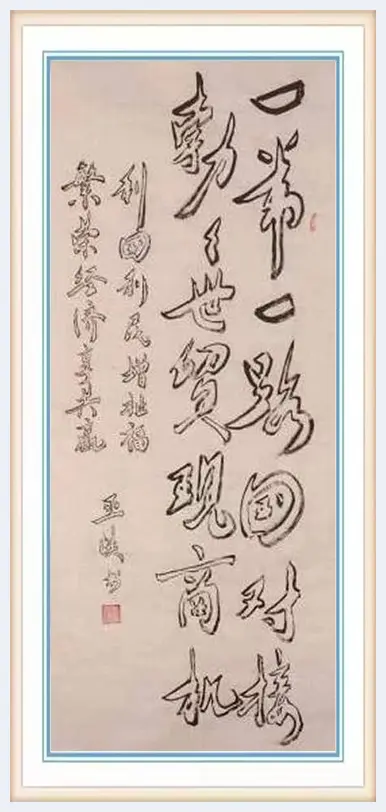 一带一路国对接
勃々世贸现商机
利国利民增祉福
繁荣经济享共赢